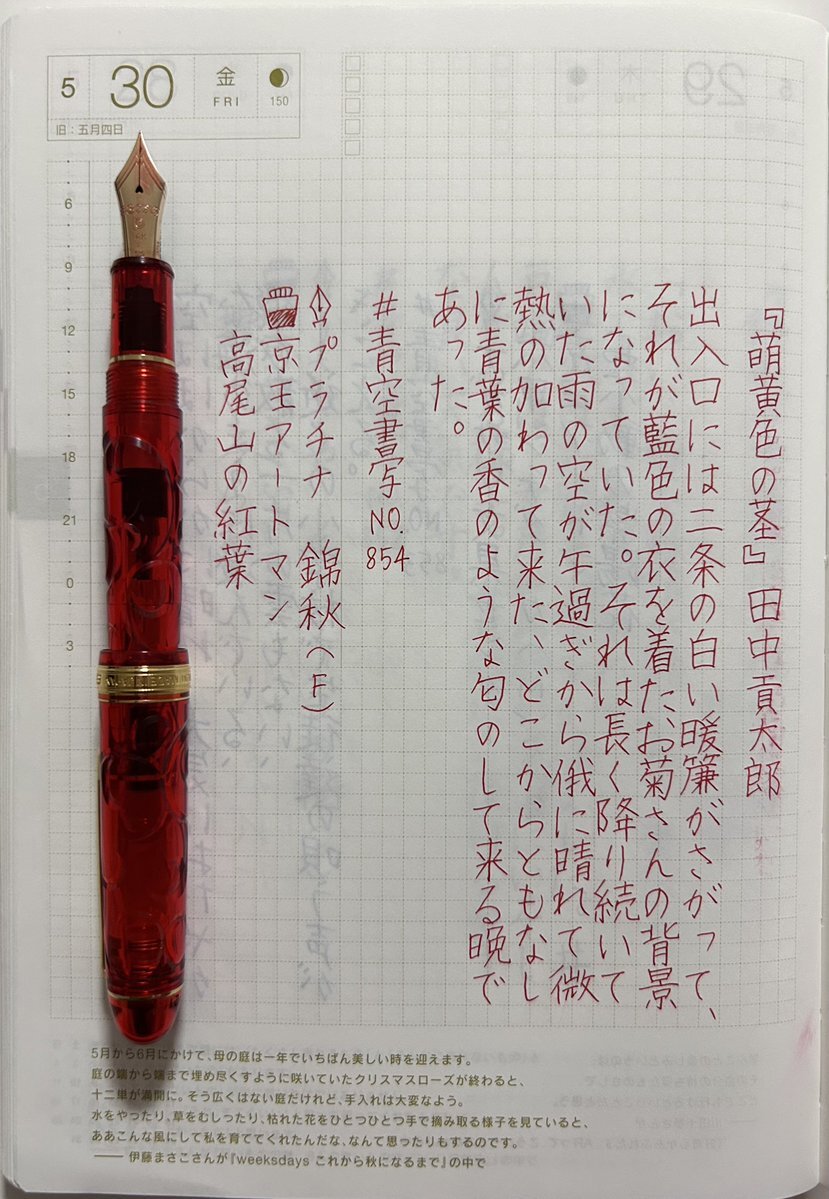 5
30
金
FRI
150
旧：五月四日
6
9
12
15
18
21
0
3
『萌黄色の茎』田中貢太郎
出入口には二条の白い暖簾がさがって、
それが藍色の衣を着たお菊さんの背景
になっていた。それは長く降り続いて
いた雨の空が午過ぎから俄に晴れて微
熱の加わって来た、どこからともなし
に青葉の香のような匂のして来る晩で
あった。
#青空書写 NO.854
プラチナ 錦秋（F）
京王アートマン
高尾山の紅葉
5月から6月にかけて、母の庭は一年でいちばん美しい時を迎えます。
庭の端から端まで埋め尽くすように咲いていたクリスマスローズが終わると、
十二単が満開に。そう広くはない庭だけれど、手入れは大変なよう。
水をやったり、草をむしったり、枯れた花をひとつひとつ手で摘み取る様子を見ていると、
ああこんな風にして私を育ててくれたんだな、なんて思ったりもするのです。
―― 伊藤まさこさんが『weeksdays これから秋になるまで』の中で